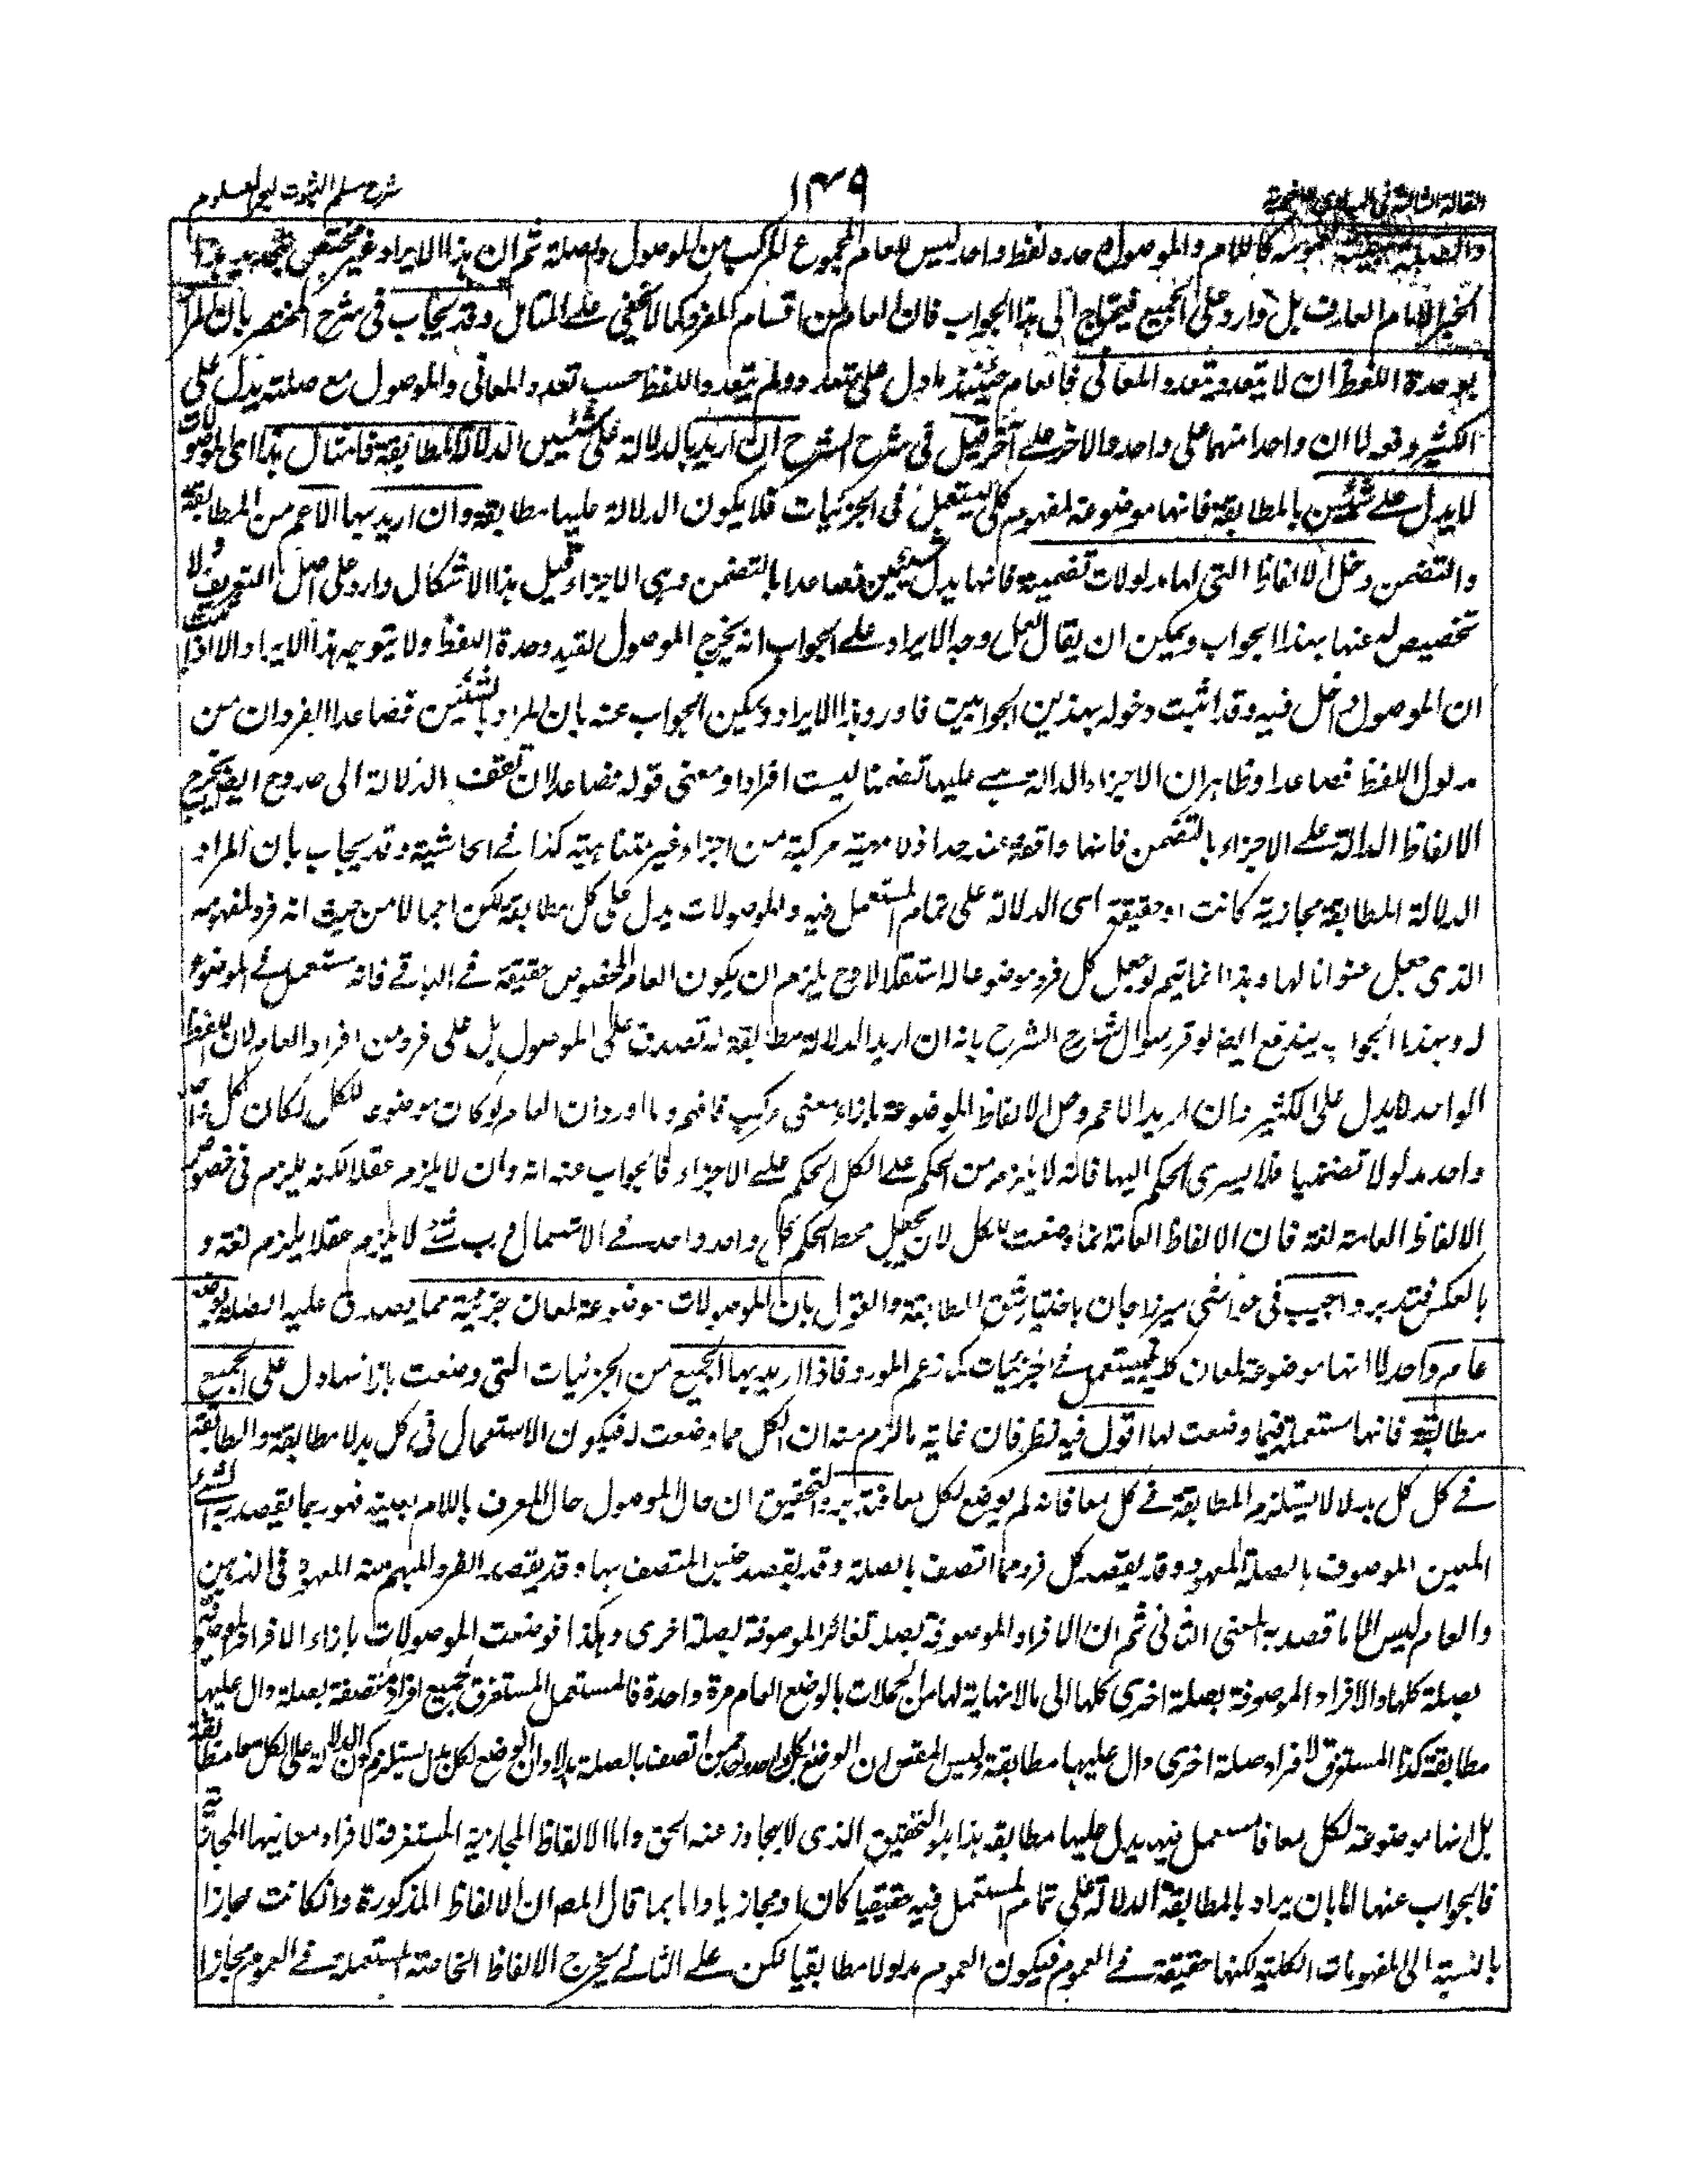 المقالة الثالثة فى المبادى اللغوية ١٤٩ شرح مسلم الثبوت لبحر العلوم
كاللام والموصول وحده لفظ واحد ليس للعام المجموع المركب من الموصول والصلة ثم ان هذا الايراد غير مختص بتحديد هذا
الحبر الامام العارف بل وارد على الجميع فيحتاج الى هذا الجواب فان العام من اقسام المفرد كما لا يخفى على المتامل وقد يجاب فى شرح المختصر بان المراد
بوحدة اللفظ ان لا يتعدد بتعدد المعانى فالعام حينئذ ما دل على متعدد ولم يتعدد اللفظ حسب تعدد المعانى والموصول مع صلته يدل على
الكثير دفعة لا ان واحدا منهما على واحد والاخر على آخر قيل فى شرح الشرح ان اريد بالدلالة على شيئين الدلالة المطابقة فامثال هذا اى الموصولات
لا يدل على شيئين بالمطابقة فانها موضوعة لمفهوم كلى يستعمل فى الجزئيات فلا يكون الدلالة عليها مطابقة وان اريد بها الاعم من المطابقة
والتضمن دخل الالفاظ التى لها مدلولات تضمنية فانها يدل شيئين فصاعدا بالتضمن وهى الاجزاء قيل هذا الاشكال وارد على اصل التعريف ولا
تخصيص له عنها بهذا الجواب ويمكن ان يقال لعل وجه الايراد على الجواب انه يخرج الموصول لقيد وحدة اللفظ ولا يتوجه هذا الايراد الا اذا ثبت
ان الموصول داخل فيه وقد اثبت دخوله بهذين الجوابين فاورد هذا الايراد ويمكن الجواب عنه بان المراد بالشيئين فصاعدا الفردان من
مدلول اللفظ فصاعدا وظاهر ان الاجزاء الدالة هى عليها تضمنا ليست افرادا ومعنى قوله فصاعدا ان تقف الدلالة الى حد وح ايضا يخرج
الالفاظ الدالة على الاجزاء بالتضمن فانها واقفة عند حد اذ لا مهية مركبة من اجزاء غير متناهية كذا فى الحاشية وقد يجاب بان المراد
الدلالة المطابقة مجازية كانت او حقيقة اى الدلالة على تمام المستعمل فيه والموصولات يدل على كل مطابقة لكن اجمالا من حيث انه فرد لمفهومه
الذى جعل عنوانا لها وهذا انما يتم لو جعل كل فرد موضوعا له استقلالا وح يلزم ان يكون العام المخصوص حقيقة فى الباقى فانه مستعمل فى الموضوع
له وبهذا الجواب يندفع ايضا لو قرر سوال شارح الشرح بانه ان اريد الدلالة مطابقة لم تصدق على الموصول بل على فرد من افراد العام لان اللفظ
الواحد لا يدل على الكثير وان اريد الاعم دخل الالفاظ الموضوعة بازاء معنى مركب فافهم وما اورد ان العام لو كان موضوعا للكل لكان كل واحد
واحد مدلولا تضمنيا فلا يسرى الحكم اليها فانه لا يلزم من الحكم على الكل الحكم على الاجزاء فالجواب عنه انه وان لا يلزم عقلا لكنه يلزم فى خصوص
الالفاظ العامة لغة فان الالفاظ العامة انما وضعت للكل لان يجعل محط الحكم كل واحد واحد فى الاستعمال فرب شئ لا يلزم عقلا يلزم لغة و
بالعكس فتدبر واجيب فى حواشى ميرزا جان باختيار شق المطابقة والقول بان الموصولات موضوعة لمعان جزئية مما يصدق عليه الصلة بوضع
عام واحد لا انها موضوعة لمعان كلية يستعمل فى الجزئيات كما زعم المورد فاذا اريد بها الجميع من الجزئيات التى وضعت بازائها دل على الجميع
مطابقة فانها مستعملة فيما وضعت لها اقول فيه نظر فان غاية ما لزم منه ان الكل مما وضعت له فيكون الاستعمال فى كل بدلا مطابقة والمطابقة
فى كل كل بدلا لا يستلزم المطابقة فى كل معا فانه لم يوضع لكل معا فتدبر والتحقيق ان حال الموصول حال المعرف باللام بعينه فهو ربما يقصد به الشئ
المعين الموصوف بالصلة المعهود وقد يقصد كل فرد مما اتصف بالصلة وقد يقصد جنس المتصف بها وقد يقصد الفرد المبهم منه المعهود فى الذهن
والعام ليس الا ما قصد به المعنى الثانى ثم ان الافراد الموصوفة بصلة تغائر الموصوفة بصلة اخرى وهكذا فوضعت الموصولات بازاء الافراد الموصوفة
بصلة كلها والافراد الموصوفة بصلة اخرى كلها الى ما لا نهاية لها من الجملات بالوضع العام مرة واحدة فالمستعمل المستغرق لجميع افراد متصفة بصلة دال عليها
مطابقة كذا المستغرق لافراد صلة اخرى دال عليها مطابقة وليس المقصود ان الوضع لكل واحد واحد ممن اتصف بالصلة بدلا وان الوضع لكل بدل يستلزم كون الدلالة على الكل معا مطابقة
بل انها موضوعة لكل معا فالمستعمل فيه يدل عليها مطابقة هذا هو التحقيق الذى لا يجاوز عنه الحق واما الالفاظ المجازية المستغرقة لافراد معانيها المجازية
فالجواب عنها اما بان يراد بالمطابقة الدلالة على تمام المستعمل فيه حقيقيا كان او مجازيا واما بما قال المصـ ان الالفاظ المذكورة وان كانت مجازا
بالنسبة الى المفهومات الكلية لكنها حقيقة فى العموم فيكون العموم مدلولا مطابقيا لكن على الثانى يخرج الالفاظ الخاصة المستعملة فى العموم مجازا